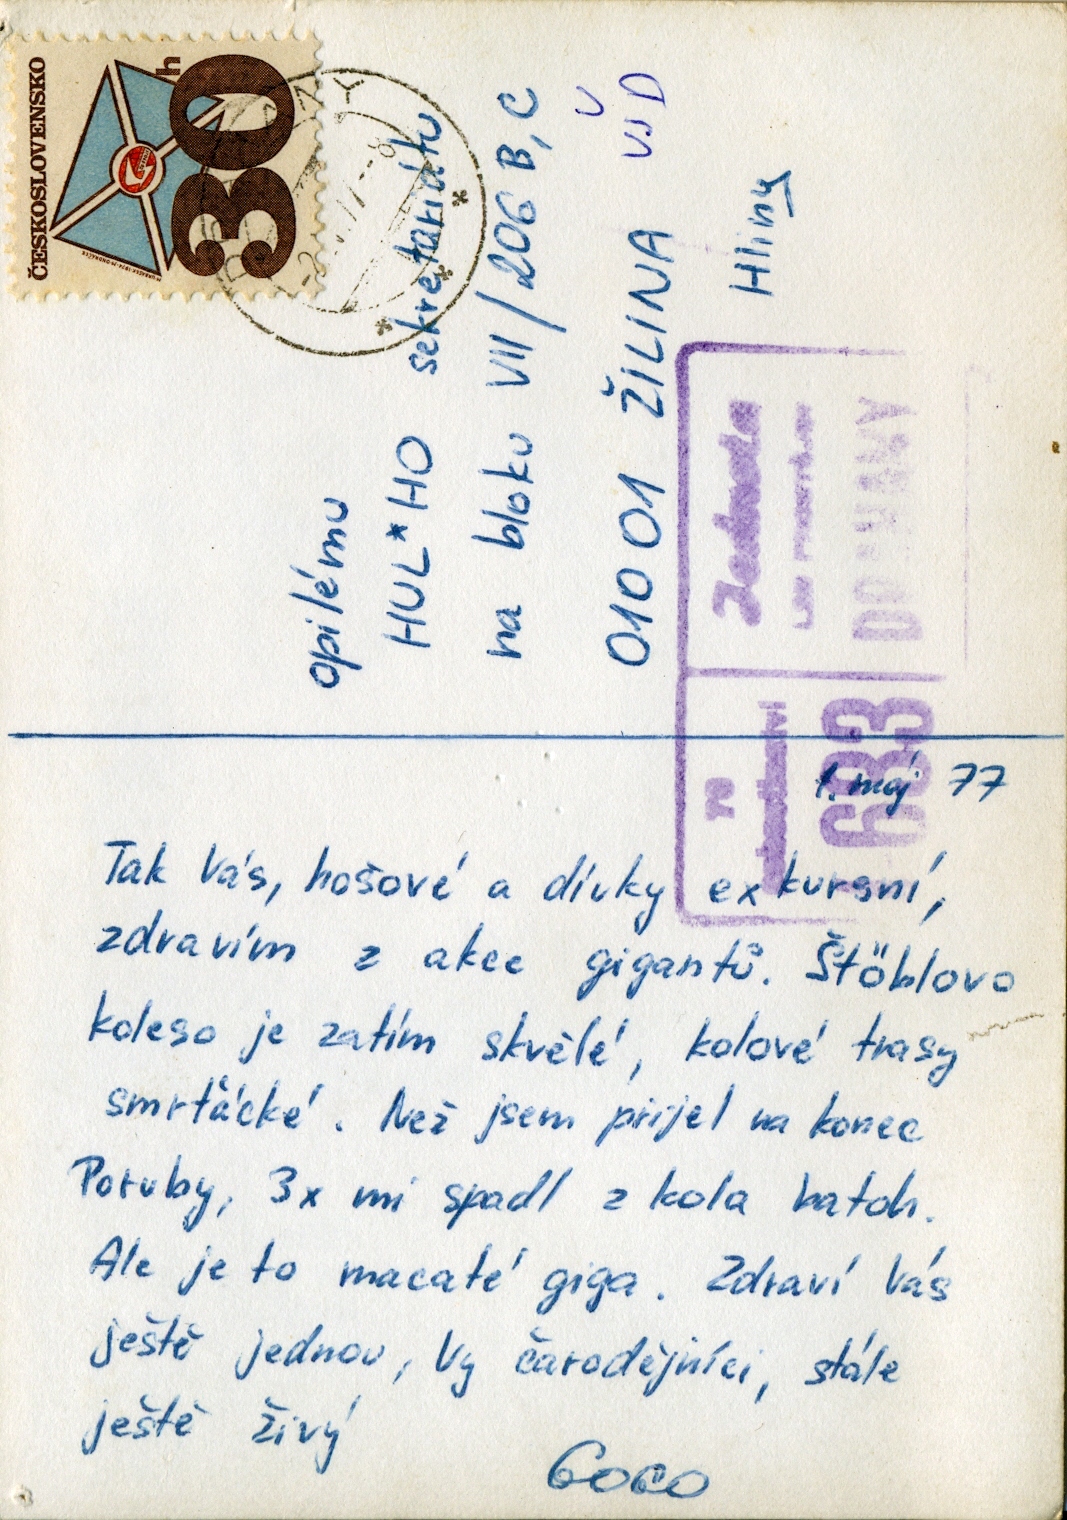 ČESKOSLOVENSKO
30
h
opilému
HUL*HO sekretariátu
na bloku VII/206 B,C
U
01001 ŽILINA VŠD
Hliny
Jednota
DOHŇANY
79
683
1. máj 77
Tak Vás, hošové a dívky exkursní,
zdravím z akce gigantů. Štöblovo
koleso je zatím skvělé, kolové trasy
smrťácké. Než jsem přijel na konec
Poruby, 3x mi spadl z kola batoh.
Ale je to macaté giga. Zdraví Vás
ještě jednou, Vy čarodějníci, stále
ještě živý
GOGO